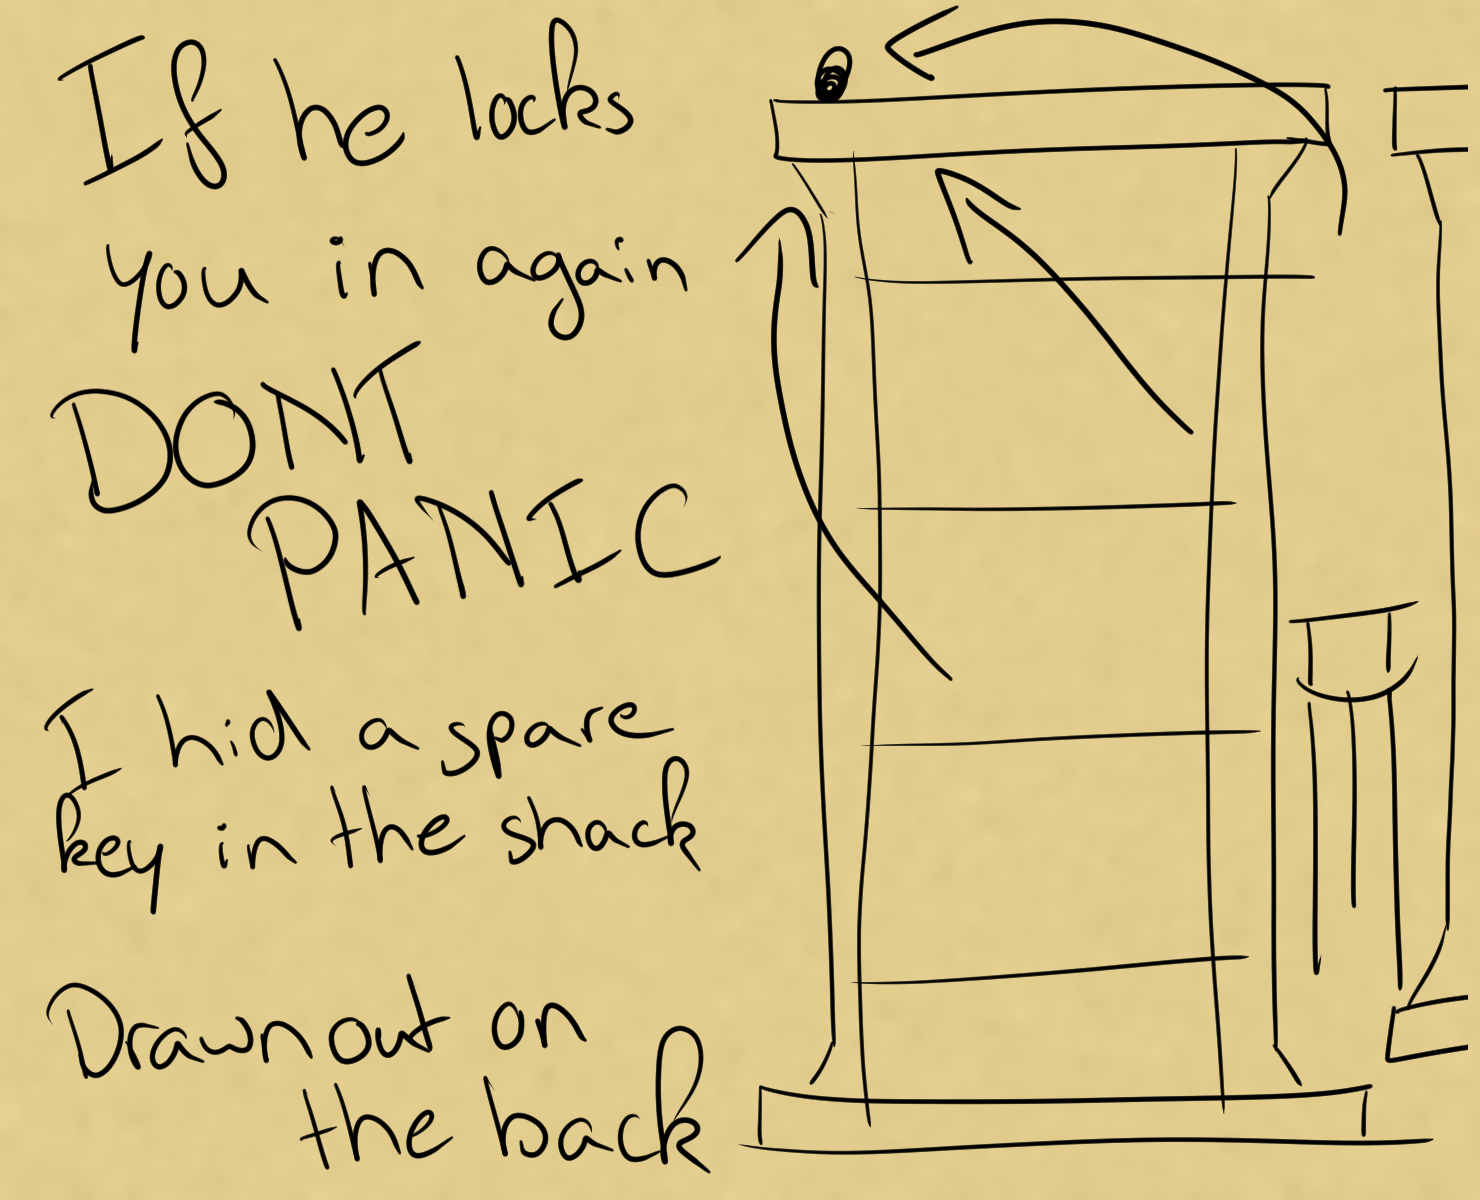 If he locks
you in again
DONT
PANIC
I hid a spare
key in the shack
Drawn out on
the back